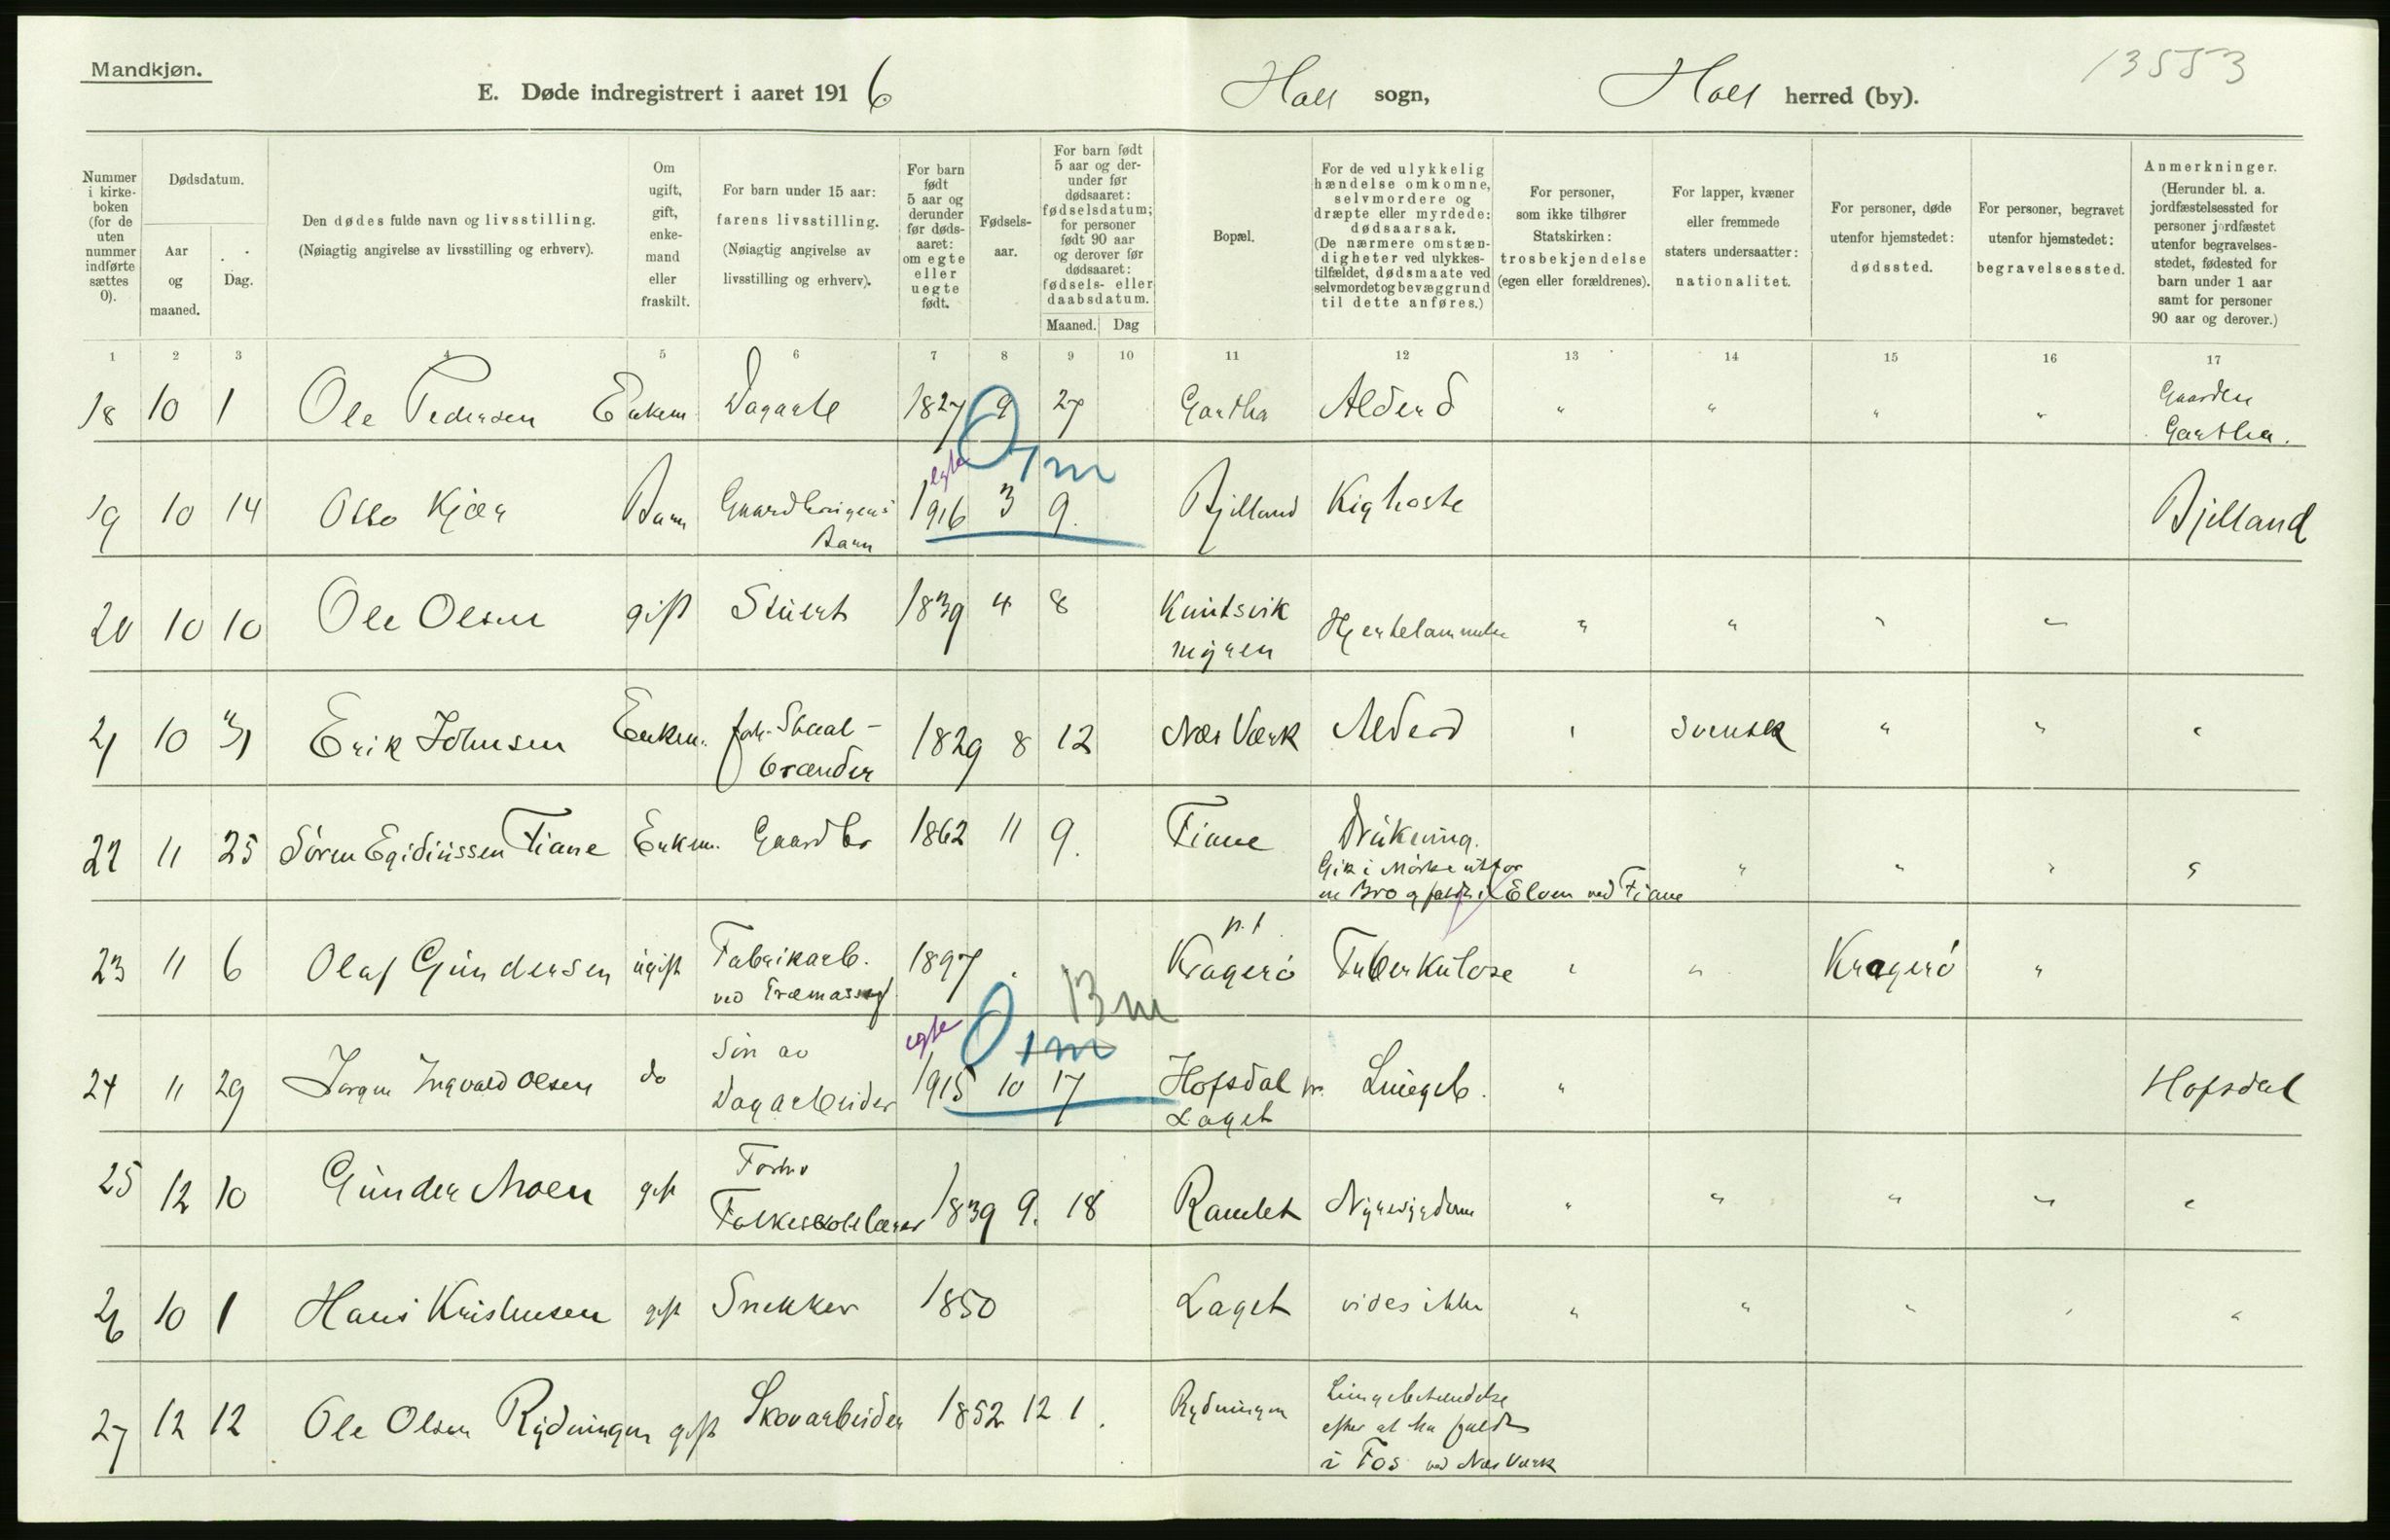 Mandkjøn.
13553
E. Døde indregistrert i aaret 1916
Holt sogn, Holt herred (by).
Nummer i kirke-boken (for de uten nummer indførte sættes 0).
Dødsdatum.
Aar og maaned.
Dag.
Den dødes fulde navn og livsstilling.
(Nøiagtig angivelse av livsstilling og erhverv).
Om ugift, gift, enke-mand eller fraskilt.
For barn under 15 aar: farens livsstilling.
(Nøiagtig angivelse av livsstilling og erhverv).
For barn født 5 aar og derunder før døds-aaret: om egte eller uegte født.
Fødsels-aar.
For barn født 5 aar og der-under før dødsaaret: fødselsdatum; for personer født 90 aar og derover før dødsaaret: fødsels- eller daabsdatum.
Maaned. Dag
Bopæl.
For de ved ulykkelig hændelse omkomne, selvmordere og dræpte eller myrdede: dødsaarsak.
(De nærmere omstæn-digheter ved ulykkes-tilfældet, dødsmaate ved selvmordet og bevæggrund til dette anføres.)
For personer, som ikke tilhører Statskirken: trosbekjendelse (egen eller forældrenes).
For lapper, kvæner eller fremmede staters undersaatter: nationalitet.
For personer, døde utenfor hjemstedet: dødssted.
For personer, begravet utenfor hjemstedet: begravelsessted.
Anmerkninger.
(Herunder bl. a. jordfæstelsessted for personer jordfæstet utenfor begravelses-stedet, fødested for barn under 1 aar samt for personer 90 aar og derover.)
1 2 3 4 5 6 7 8 9 10 11 12 13 14 15 16 17
18 10 1 Ole Pedersen Enkem Dagarb 1827 9 27 Gartha Alderd " " " " Gaarden
Gartha.
egte 0 1m
19 10 14 Otto Kjær Barn Gaardbrugers 1916 3 9. Bjelland Kighoste Bjelland
Barn
20 10 10 Ole Olsen gift Stuert 1839 4 8 Knutsvik Hjertelammelse " " " "
myren
21 10 31 Erik Johnsen Enkem. forh. Staal- 1829 8 12 Næs Værk Alderd " svensk " " "
brænder
22 11 25 Sören Egidiussen Fiane Enkem. Gaardbr 1862 11 9. Fiane Drukning.
Gik i Mörke utfor " " " "
en Bro og faldt i Elven ved Fiane
p.t.
23 11 6 Olaf Gundersen ugift Fabrikarb. 1897 Kragerö Tuberkulose " " Kragerö "
ved Træmassef
egte 0 1m 13m
Sön av
24 11 29 Jörgen Ingvald Olsen do Dagarbeider 1915 10 17 Hofsdal pr. Lungeb. " Hofsdal
Laget
Forhv
25 12 10 Gunder Moen gift Folkeskolelærer 1839 9. 18 Ramlet Nyresygdom " " " " "
26 10 1 Hans Kristensen gift Snekker 1850 Laget vides ikke " " " " "
27 12 12 Ole Olsen Rydningen gift Skovarbeider 1852 12 1. Rydningen Lungebetændelse
efter at ha faldt
i Fos ved Næs Værk